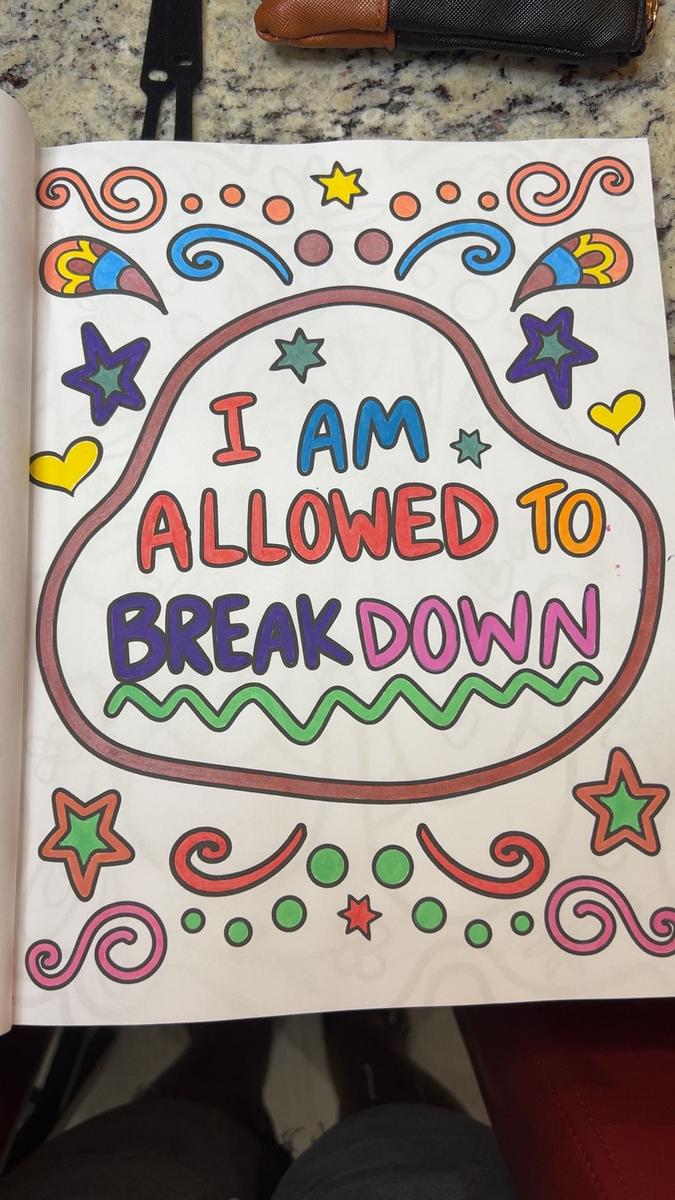 I AM
ALLOWED TO
BREAK DOWN